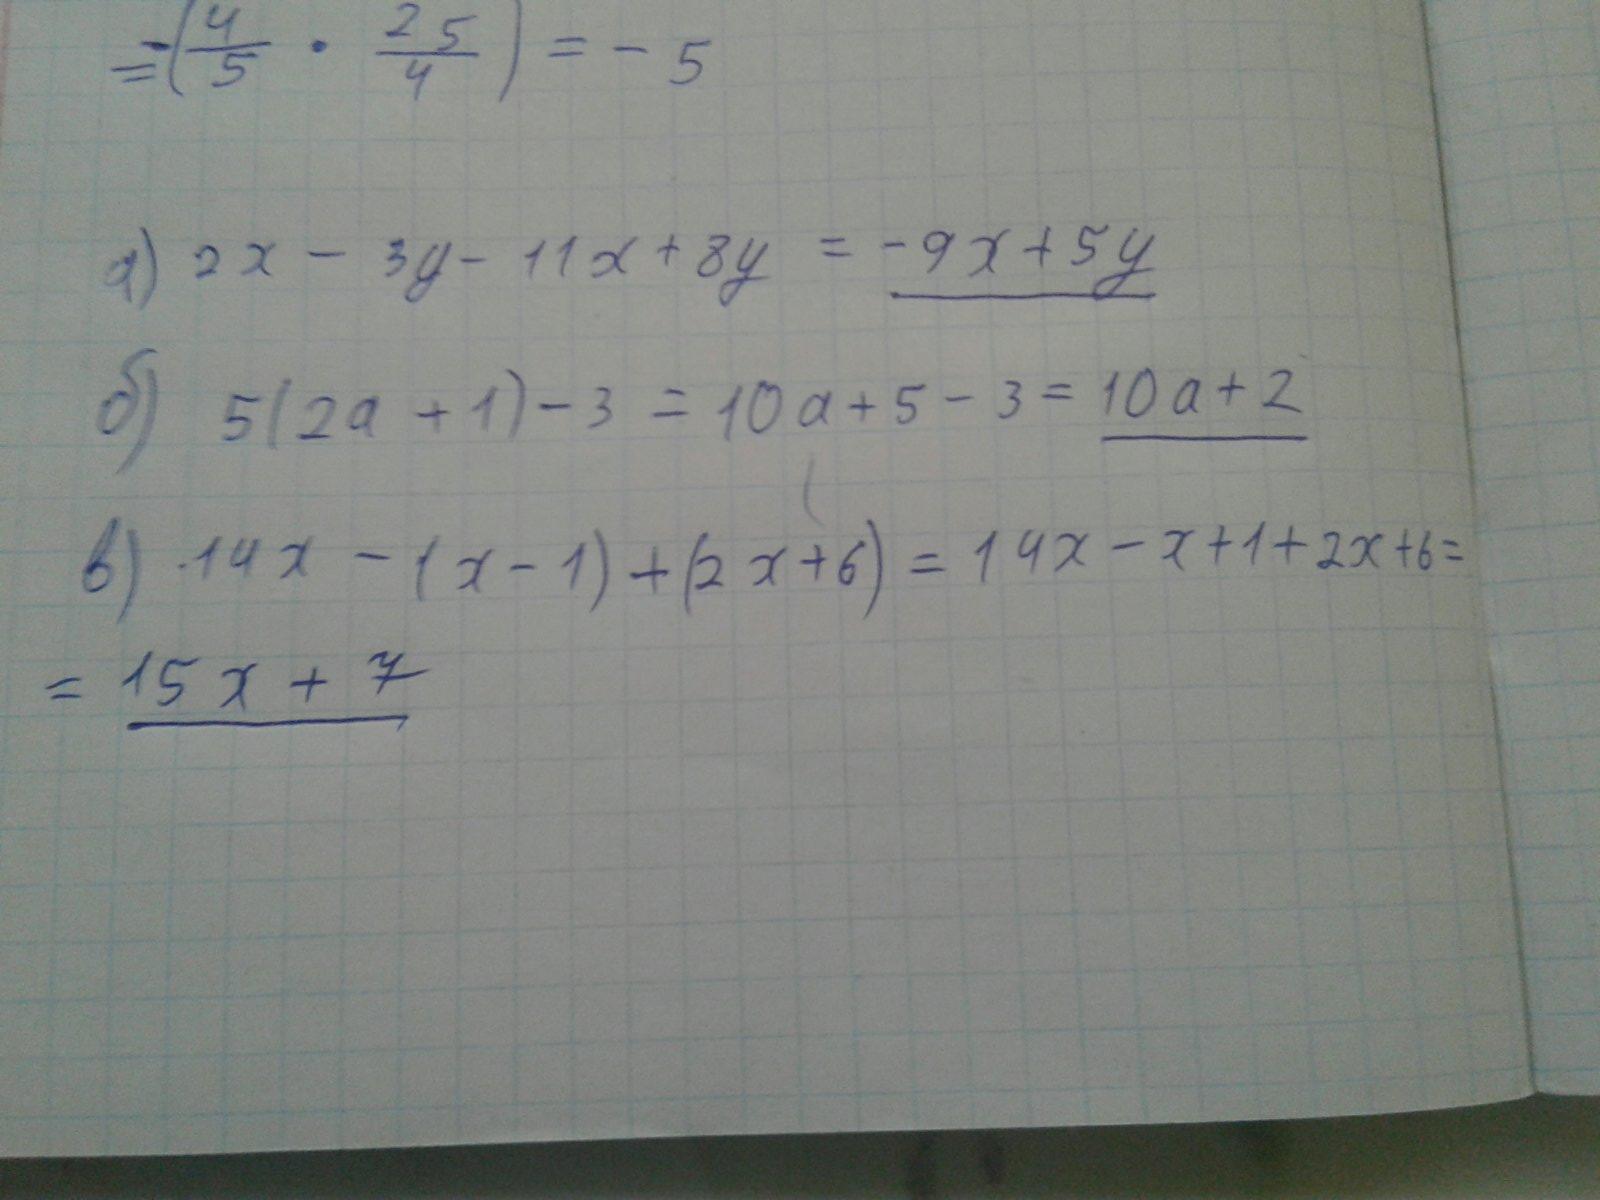 = -(4/5 · 25/4) = - 5
а) 2x - 3y - 11x + 8y = -9x + 5y
б) 5(2a + 1) - 3 = 10a + 5 - 3 = 10a + 2
в) 14x - (x - 1) + (2x + 6) = 14x - x + 1 + 2x + 6 =
= 15x + 7